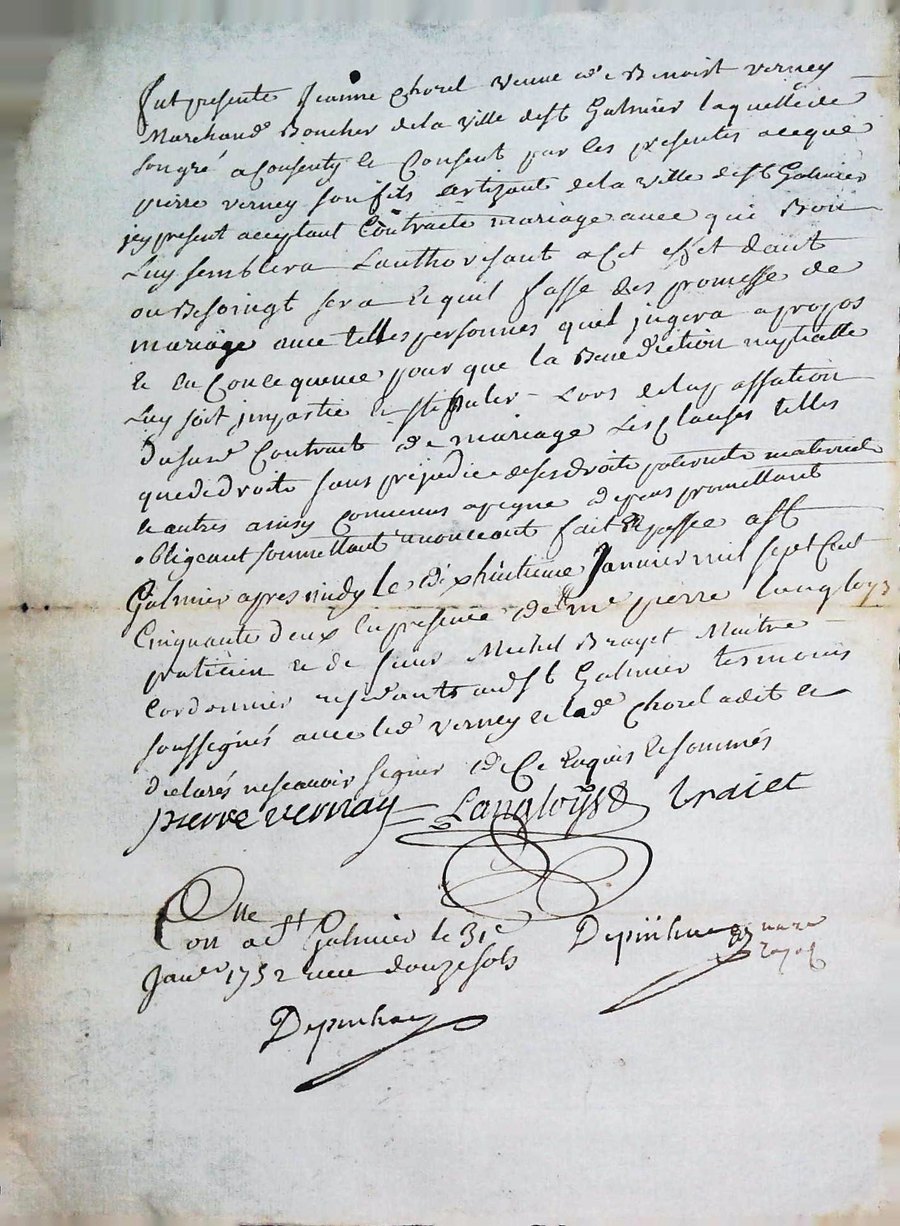 fut presente Jeanne Chorel veuve de Benoist verney
Marchand Boucher de la ville de st Galmier laquelle de
son gré a Consenty et Consent par les presentes a ceque
pierre verney son fils artizant de la ville de st Galmier
jcy present acceptant Contracte mariage avec qui Bon
Luy semblera Lauthorisant a Cet effet dautt
ou Besoingt sera et quil fasse des promesse de
mariage avec telles personnes quil jugera apropos
et en Consequence pour que la Benediction nuptialle
Luy soit jmpartie et stipuler Lors de la passation
dusurd Contract de mariage Les Clauses telles
que de droit sans prejudice de ses droits paternels maternels
et autres ainsy Convenus a peyne depens promettant
obligeant soumettant renonceant fait et passé a st
Galmier apres midy le dixhuitieme Janvier mil sept Cent
Cinquante deux en presence de me pierre Langloys
praticien et de sieur Michel Brayet Maitre
Cordonnier residants aud st Galmier tesmoins
soussignés avec led verney et lade Chorel a dit et
declarés ne scavoir signer de Ce Enquis et sommés
pierre vernay Langloys braiet
Con a st Galmier le 31e
Janer 1752 receu douze sols
Depinhac
Depinhac